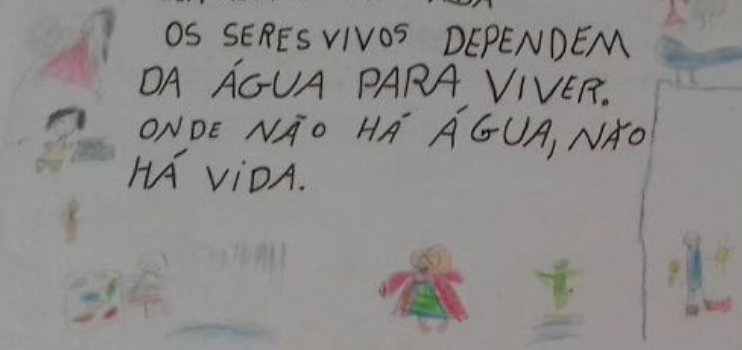 OS SERES VIVOS DEPENDEM
DA ÁGUA PARA VIVER.
ONDE NÃO HÁ ÁGUA, NÃO
HÁ VIDA.